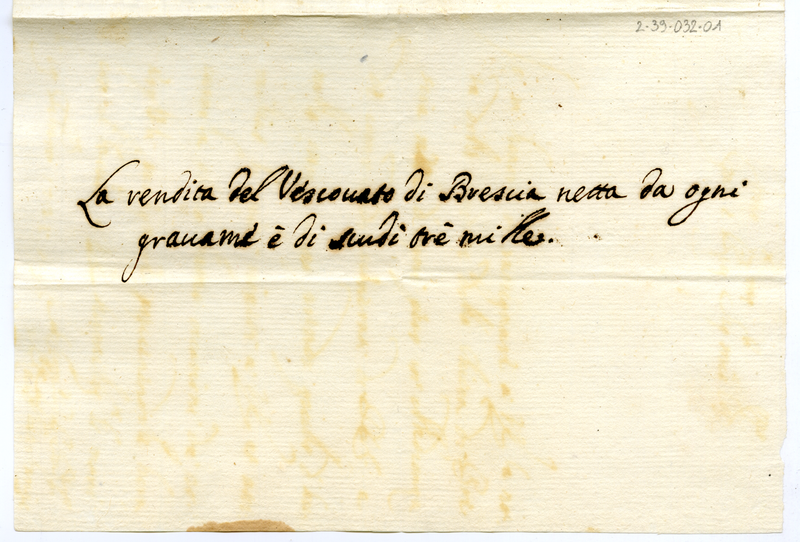 2-39-032-01
La rendita del Vescouato di Brescia netta da ogni
grauame è di scudi trè mille.